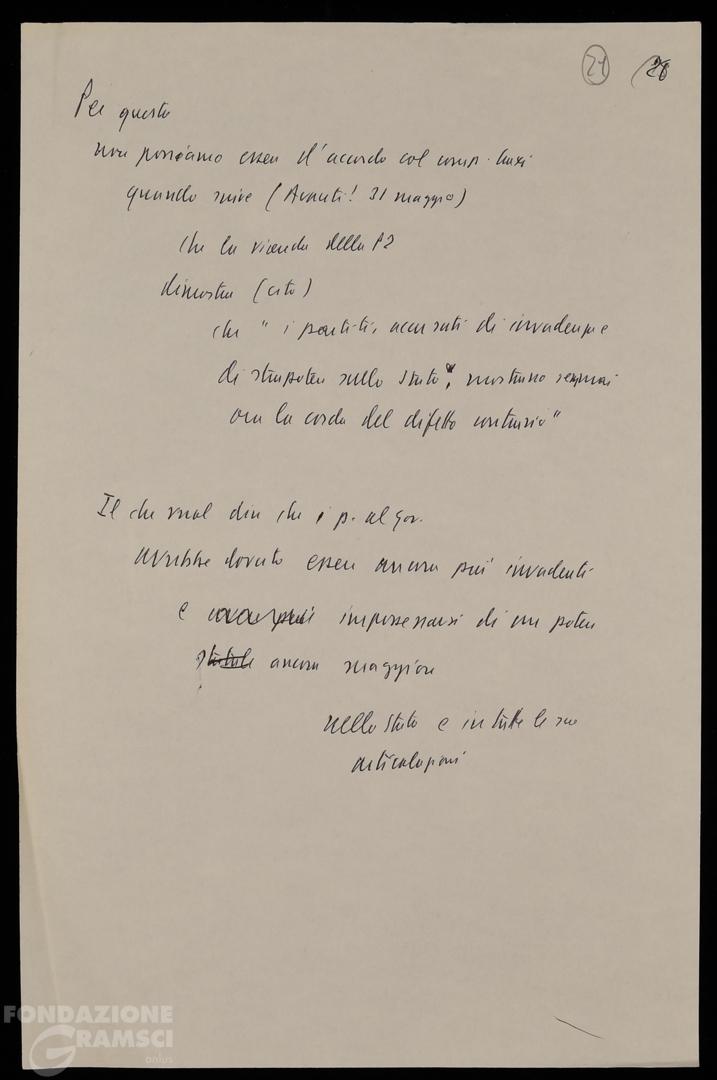 21 28
Per questo
non possiamo essere d'accordo col comp. Craxi
quando scrive (Avanti! 31 maggio)
che la vicenda della P2
dimostra (cito)
che "i partiti, accusati di invadenze
di strapotere sullo Stato, mostrano semmai
ora la corda del difetto contrario"
Il che vuol dire che i p. al gov.
avrebbe dovuto essere ancora più invadenti
e impossessarsi di un potere
statale ancora maggiore
nello Stato e in tutte le sue
articolazioni
FONDAZIONE
GRAMSCI
onlus